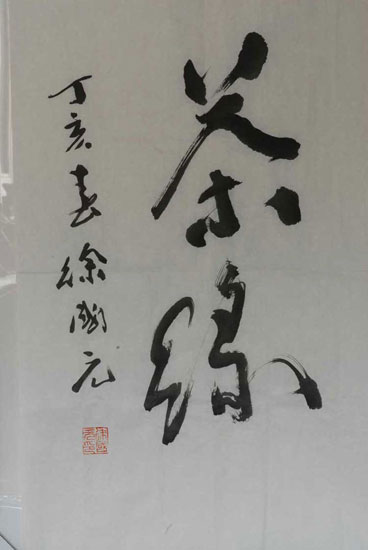 茶緣
丁亥春徐元